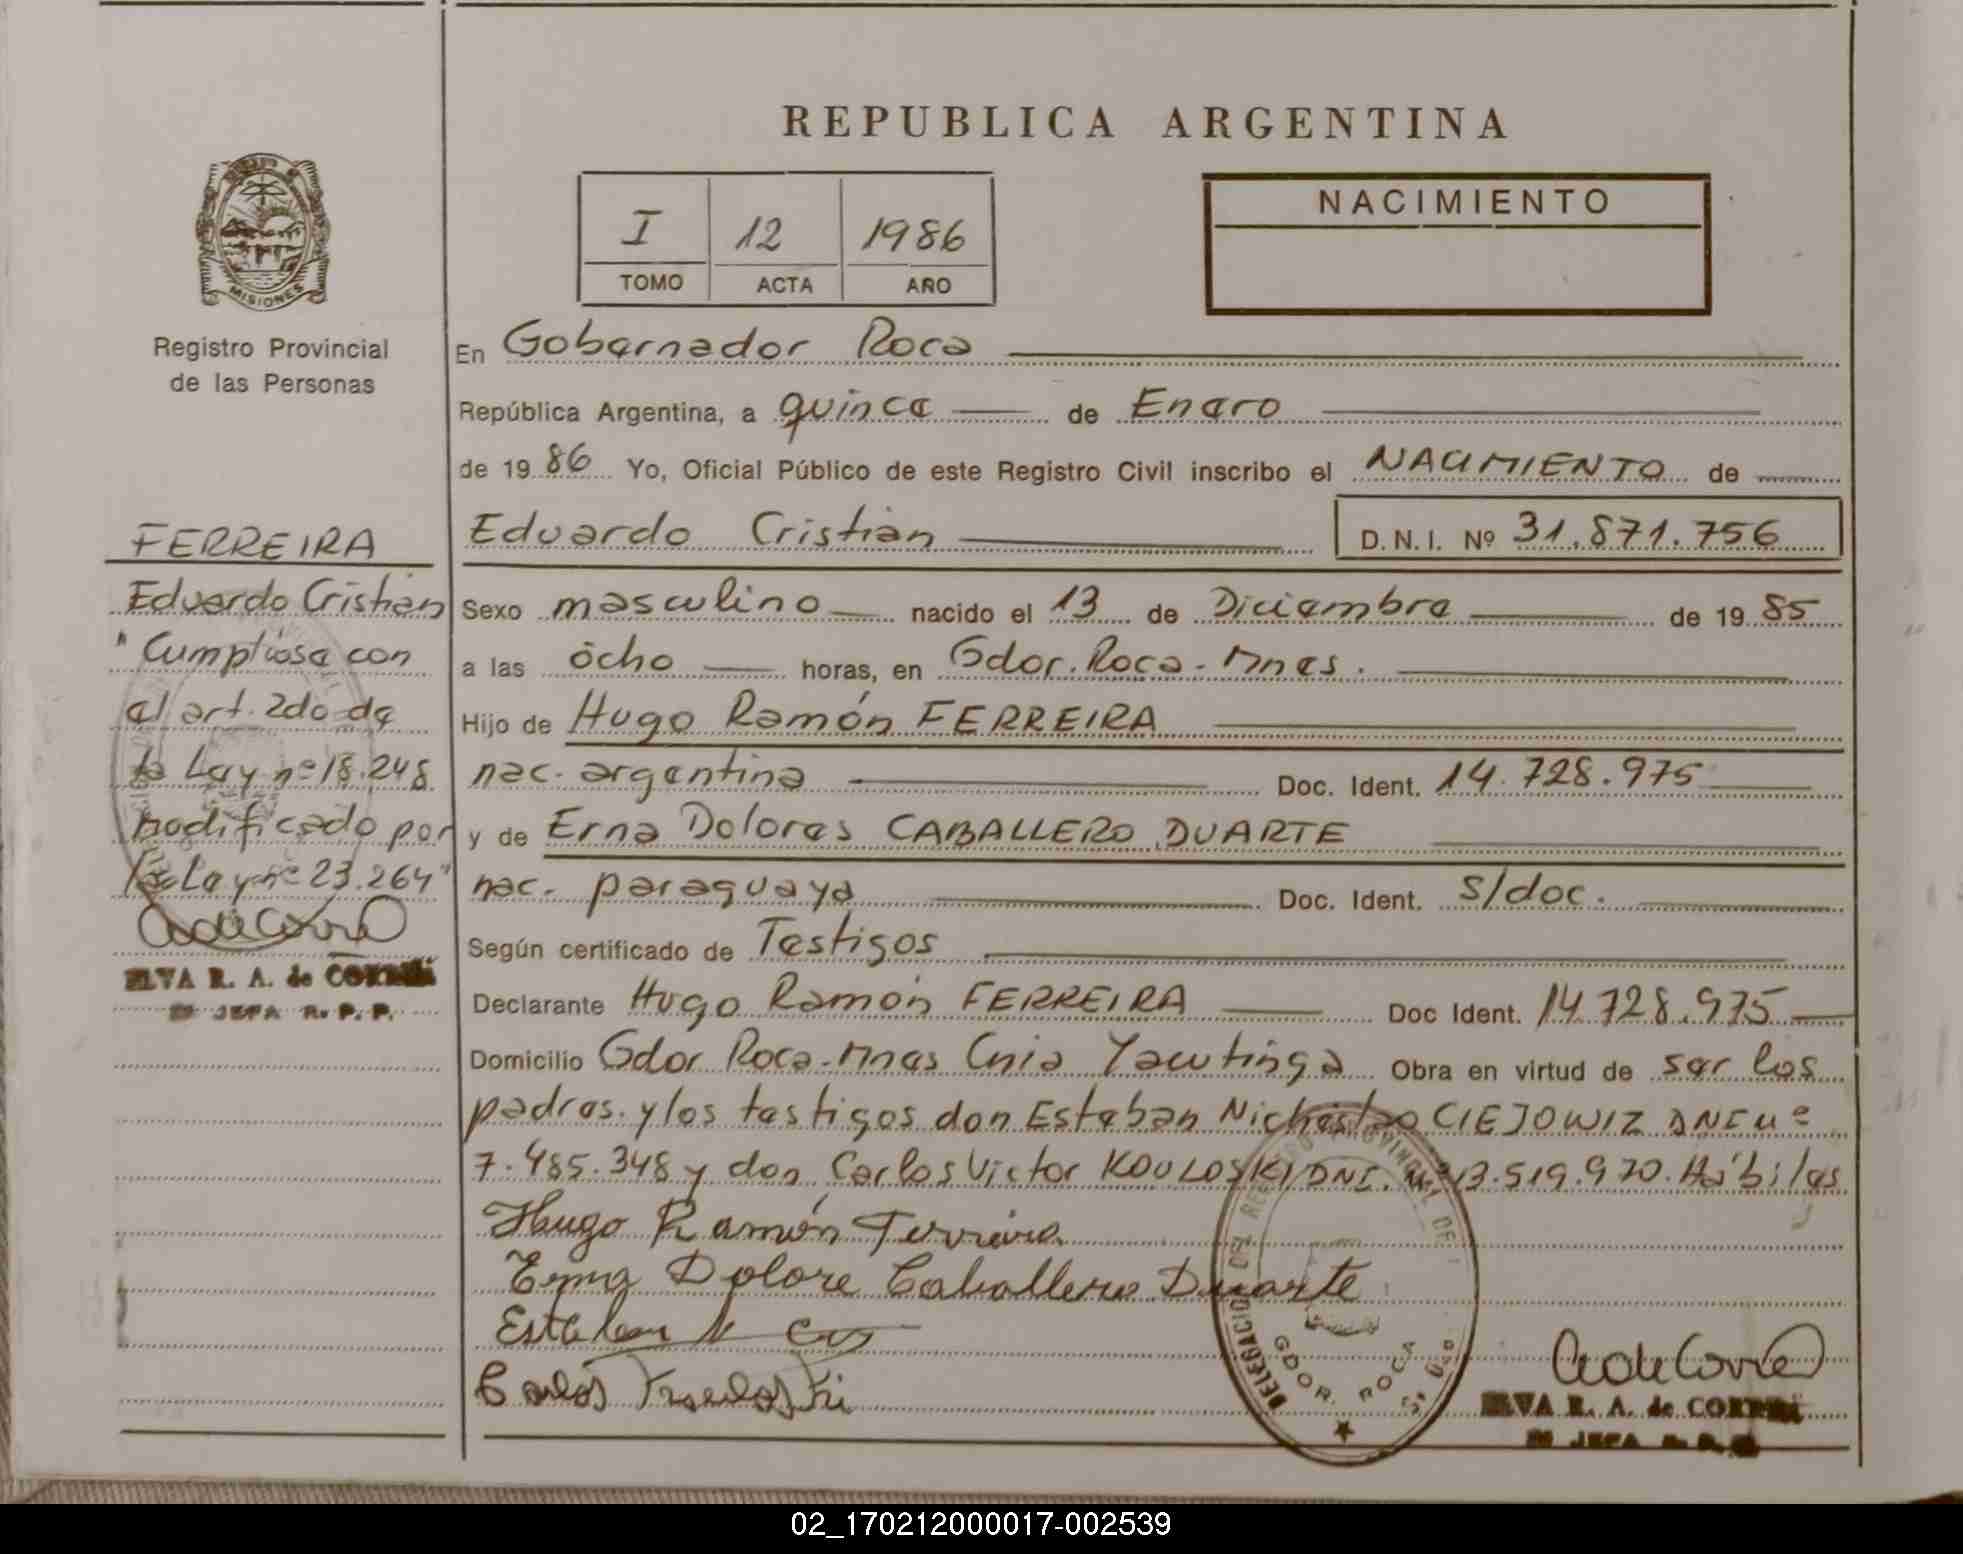 REPUBLICA ARGENTINA
I 12 1986
TOMO ACTA AÑO
NACIMIENTO
MISIONES
Registro Provincial
de las Personas
FERREIRA
Eduardo Cristian
"Cumplióse con
el art. 2do de
la Ley nº 18.248
modificado por
la Ley nº 23.264"
ELVA R. A. de
JEFA R. P. P.
En Gobernador Roca
República Argentina, a quince de Enero
de 1986 Yo, Oficial Público de este Registro Civil inscribo el NACIMIENTO de
Eduardo Cristian D.N.I. Nº 31.871.756
Sexo masculino nacido el 13 de Diciembre de 1985
a las ocho horas, en Gdor. Roca - Mnes.
Hijo de Hugo Ramón FERREIRA
nac. argentina Doc. Ident. 14.728.975
y de Erna Dolores CABALLERO DUARTE
nac. paraguaya Doc. Ident. s/doc.
Según certificado de Testigos
Declarante Hugo Ramón FERREIRA Doc Ident. 14.728.975
Domicilio Gdor Roca - Mnes Cnia Yacutinga Obra en virtud de ser los
padres y los testigos don Esteban CIEJOWIZ DNI nº
7.485.348 y don Carlos Victor KOULOSKI DNI. nº 13.519.970. Hábiles
Hugo Ramón Ferreira
Erna Dolore Caballero Duarte
Esteban N
Carlos
DELEGACION DEL REGISTRO PROVINCIAL DE
GDOR. ROCA
ELVA R. A. de
JEFA
02_170212000017-002539